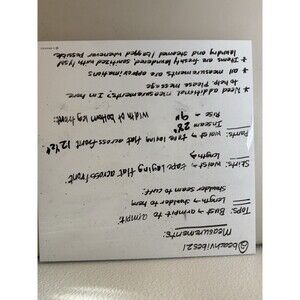 @beachvibes21
Measurements:
Tops: Bust → armpit to armpit
Length → shoulder to hem
Shoulder seam to cuff:
Skirts: waist → tape laying flat across front:
Length →
Pants: waist → tape laying flat across front 12 1/2"
Inseam 28 1/2"
Rise → 9" width of bottom leg front:
* Need additional measurements? I'm here
to help. Please message
* all measurements are approximations
* Items are freshly laundered, sanitized with lysol
laundry and steamed / bagged whenever possible.